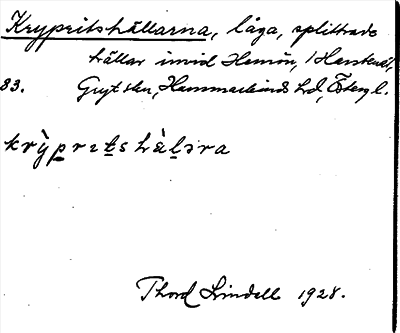 Krypritshällarna, låga, splittrade
hällar invid Hemön, Harstena,
83. Gryt skn, Hammarkinds hd, Östergl.
krỳpritshä̀ləra
Thord Lindell 1928.